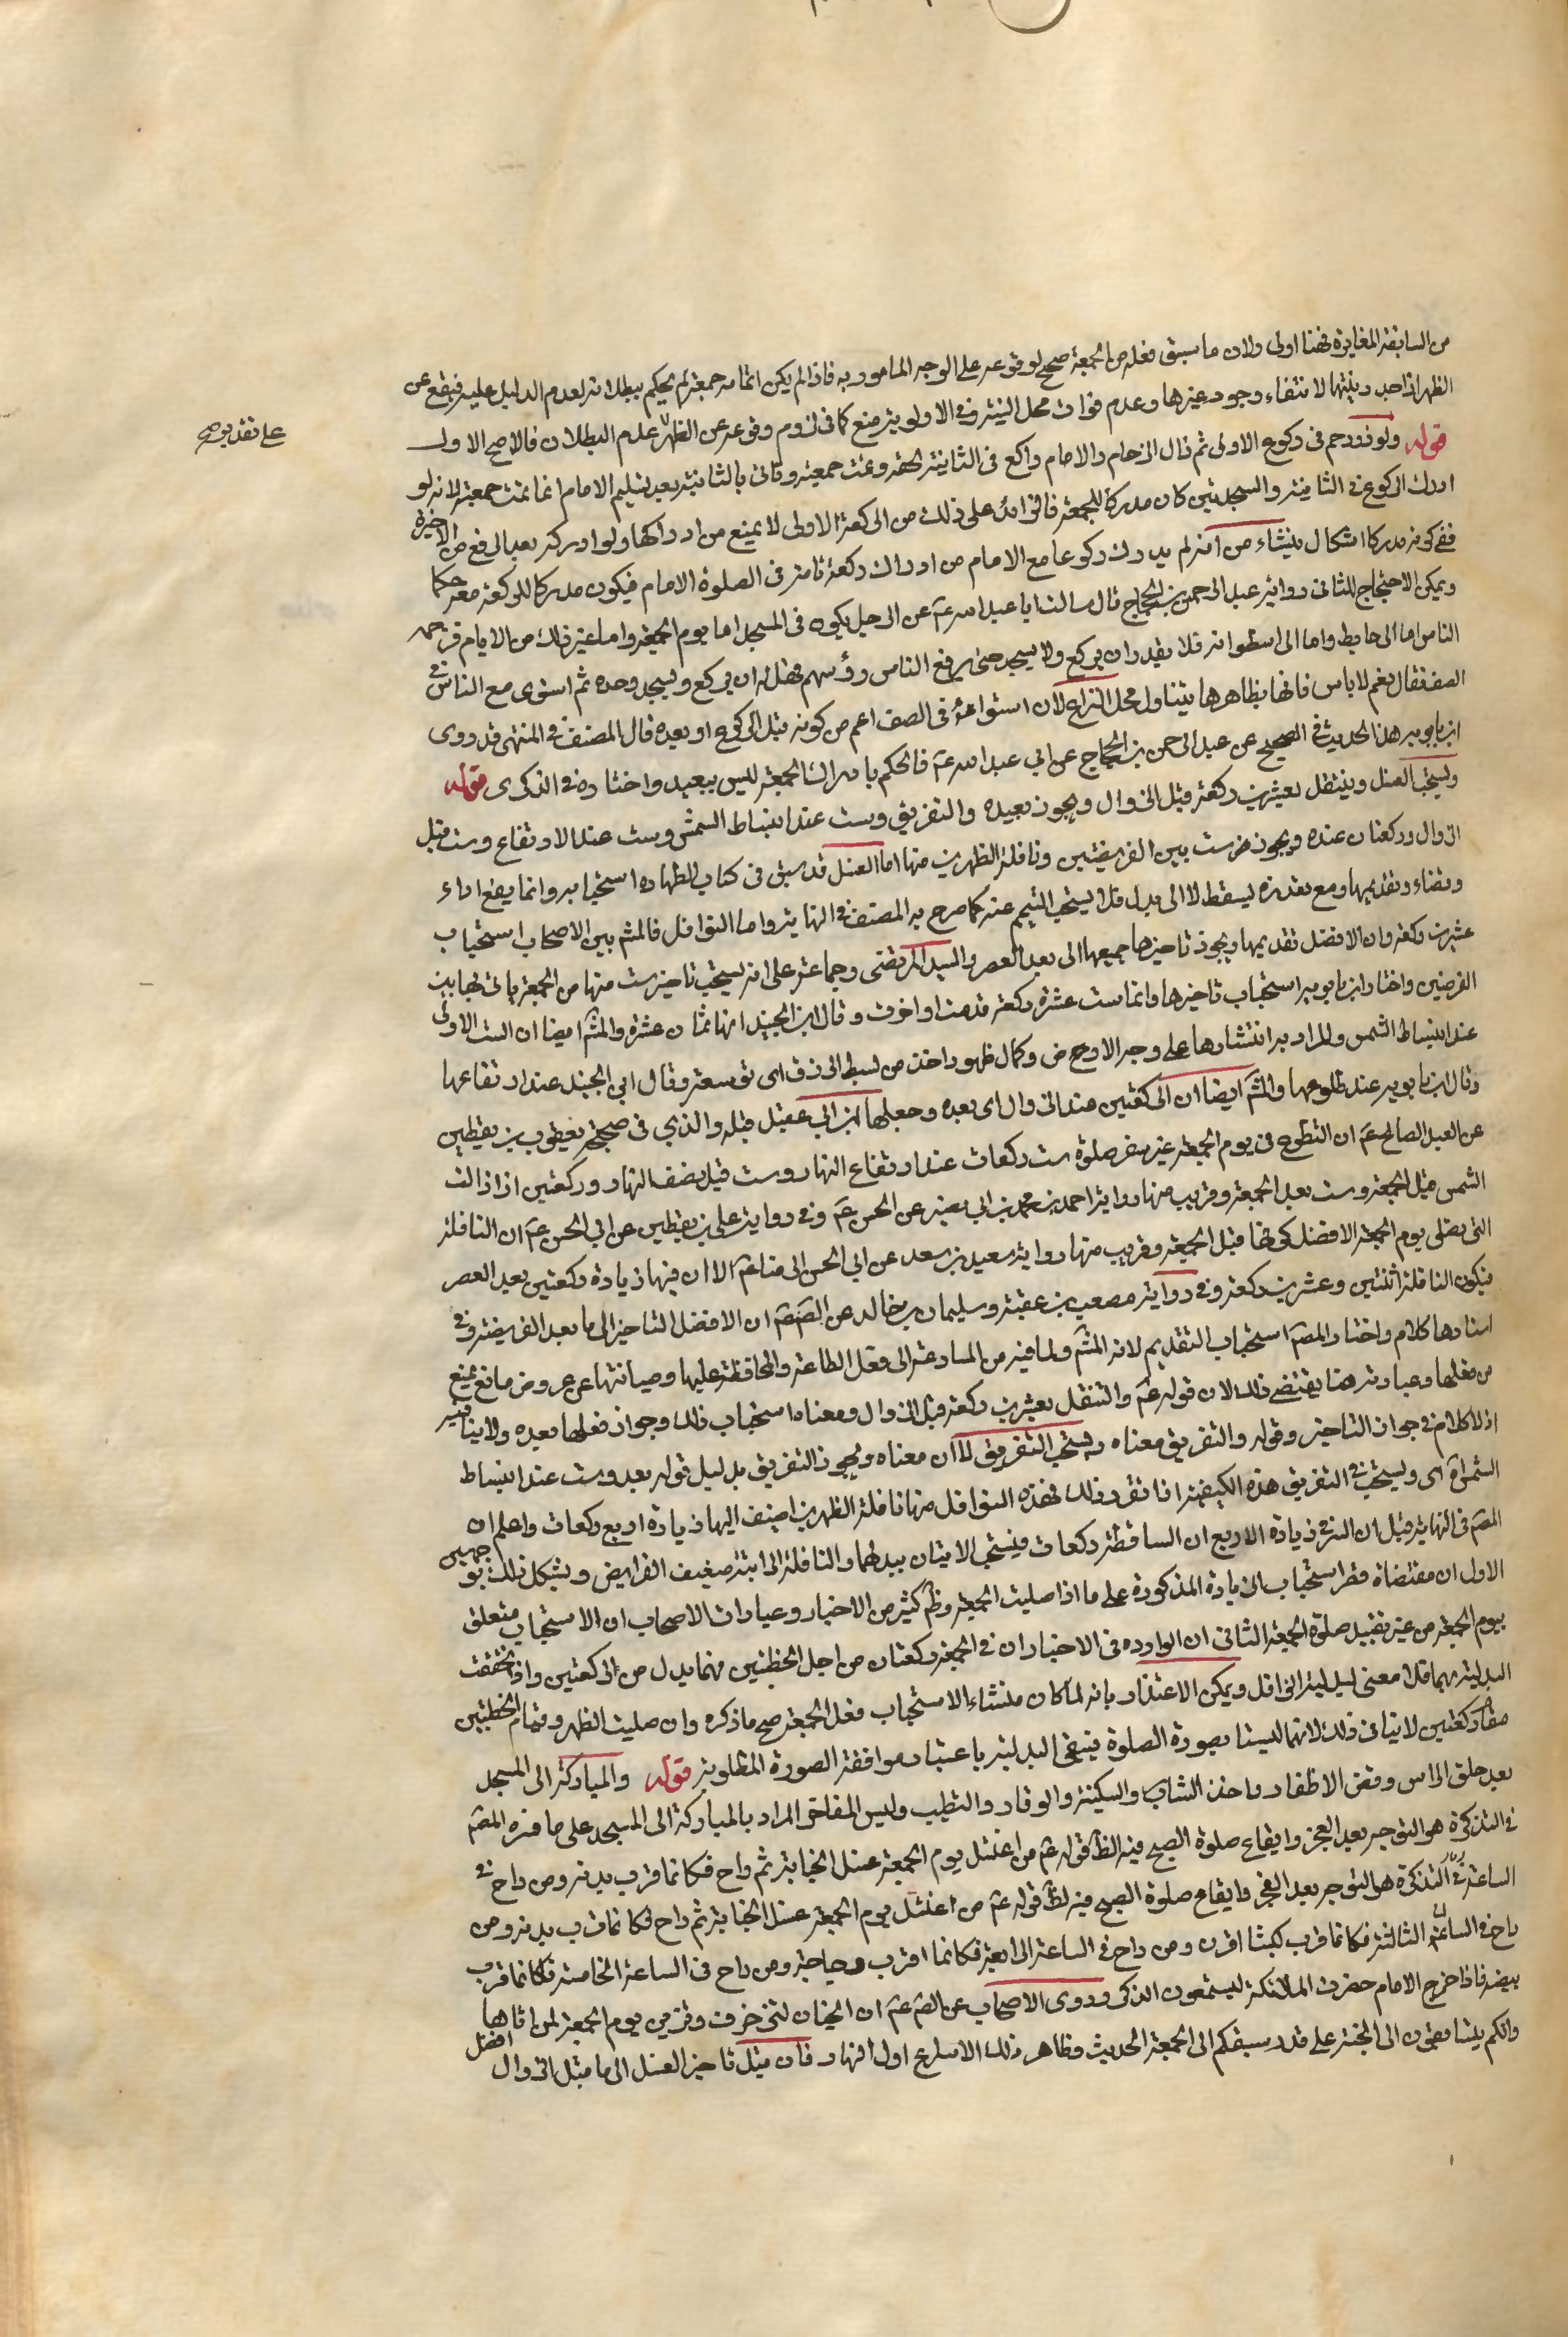 من السابقة المغايرة فهنا اولى ولان ما سبق فعله من الجمعة صحيح لوقوعه على الوجه المامور به فاذا لم يكن اتمامه جمعة لم يحكم ببطلانه لعدم الدليل عليه فيقع عن
الظهر اذا جدد نيتها لانتفاء وجود غيرها وعدم فوات محل النية وفي الاولوية منع كما في لزوم وقوعه عن الظهر عدم البطلان فالاصح الاول
على تقديره
قوله ولو زوحم في ركوع الاولى ثم زال الزحام والامام راكع في الثانية لحقه وتمت جمعته وياتي بالثانية بعد تسليم الامام انما تمت جمعته لانه لو
ادرك الركوع في الثانية والسجدتين كان مدركا للجمعة فالزايد على ذلك من الركعة الاولى لا يمنع من ادراكها ولو ادركه بعد الرفع من الاخيرة
ففي كونه مدركا اشكال ينشاء من انه لم يدرك ركوعا مع الامام من ادراك ركعة تامة في الصلوة الامام فيكون مدركا للركعة معه حكما
ويمكن الاحتجاج للثاني رواية عبد الرحمن بن الحجاج قال سالت ابا عبد الله عم عن الرجل يكون في المسجد اما يوم الجمعة واما غير ذلك من الايام فزحمه
الناس اما الى حايط واما الى اسطوانة فلا يقدر ان يركع ولا يسجد حتى يرفع الناس رؤسهم فهل له ان يركع ويسجد وحده ثم استوى مع الناس في
الصف فقال نعم لا باس فانها بظاهرها يتناول محل النزاع لان استواءه في الصف اعم من كونه قبل الركوع او بعده قال المصنف في المنتهى قد روى
ابن بابويه هذا الحديث في الصحيح عن عبد الرحمن بن الحجاج عن ابي عبد الله عم فالحكم بادراك الجمعة ليس ببعيد واختاره في الذكرى قوله
ويستحب الغسل ويتنفل بعشرين ركعة قبل الزوال ويجوز بعده والتفريق وست عند انبساط الشمس وست عند الارتفاع وست قبل
الزوال وركعتان عنده ويجوز ست بين الفريضتين ونافلة الظهرين منها اما الغسل قد سبق في كتاب الطهارة استحبابه وانما يقع اداء
وقضاء وتقديمها ومع تعذره يسقط لا الى بدل فلا يستحب التيمم عنه كما صرح به المصنف في النهاية واما النوافل فالمشم بين الاصحاب استحباب
عشرين ركعة وان الافضل تقديمها ويجوز تاخيرها جميعها الى بعد العصر والسيد المرتضى وجماعة على انه يستحب تاخير ست منها من الجمعة ياتي بها بين
الفرضين واختار ابن بابويه استحباب تاخيرها وانما ست عشرة ركعة قدمت او اخرت وقال ابن الجنيد انها ثمان عشرة والمشم ايضا ان الست الاولى
عند انبساط الشمس والمراد به انتشارها على وجه الارض وكمال ظهور اخذت من بسط الرزق اى توسعته وقال ابي الجنيد عند ارتفاعها
وقال ابن بابويه عند طلوعها والمشم ايضا ان الركعتين عند الزوال اى بعده وجعلها ابن ابي عقيل قبله والذي في صحيحة يعقوب بن يقطين
عن العبد الصالح عم ان التطوع في يوم الجمعة غير سفر صلوة ست ركعات عند ارتفاع النهار وست قبل نصف النهار وركعتين اذا زالت
الشمس قبل الجمعة وست بعد الجمعة وقريب منها رواية احمد بن محمد بن ابي نصر عن الحسن عم وفي رواية علي بن يقطين عن ابي الحسن عم ان النافلة
التي تصلى يوم الجمعة الافضل كونها قبل الجمعة وقريب منها رواية سعيد بن سعد عن ابي الحسن الرضا عم الا ان فيها زيادة ركعتين بعد العصر
فيكون النافلة اثنتين وعشرين ركعة وفي رواية مصعب بن عقبة وسليمان بن خالد عن الصم ان الافضل التاخير الى ما بعد الفريضة وفي
اسنادها كلام واختار المصم استحباب التقديم لانه المشم ولما فيه من المسارعة الى فعل الطاعة والمحافظة عليها وصيانتها عن عروض مانع يمنع
من فعلها وعبارته هنا يقتضي ذلك لان قوله عم والتنفل بعشرين ركعة قبل الزوال ومعناه استحباب ذلك وجواز فعلها بعده ولا ينافيه
اذ لا كلام في جواز التاخير وقوله والتفريق معناه ويستحب التفريق لا ان معناه ويجوز التفريق بدليل قوله بعد وست عند انبساط
الشم اى ويستحب في التفريق هذه الكيفية اذا تقرر ذلك فهذه النوافل منها نافلة الظهرين اضيف اليها زيادة اربع ركعات واعلم ان
المصم في النهاية قيل ان السر في زيادة الاربع ان الساقطة ركعات فيستحب الاتيان ببدلهما والنافلة الراتبة ضعيف الفرايض ويشكل ذلك بوجهين
الاول ان مقتضاه قصر استحباب الزيادة المذكورة على ما اذا صليت الجمعة وظم كثير من الاخبار وعبارات الاصحاب ان الاستحباب متعلق
بيوم الجمعة من غير تقييد صلوة الجمعة الثاني ان الوارده في الاخبار ان في الجمعة ركعتان من اجل الخطبتين فهما بدل من الركعتين واذا تحققت
البدلية بهما فلا معنى لبدلية النوافل ويمكن الاعتذار بانه لما كان منشاء الاستحباب فعل الجمعة صح ما ذكره وان صليت الظهر وقيام الخطبتين
مقام ركعتين لا ينافي ذلك لانهما ليستا بصورة الصلوة فينبغي البدلية باعتبار موافقة الصورة المطلوبة قوله والمباركة الى المسجد
بعد حلق الراس وقص الاظفار واخذ الشارب والسكينة والوقار والتطيب ولبس المفاخر المراد بالمباركة الى المسجد على ما فسره المصم
في التذكرة هو التوجه بعد الفجر وايقاع صلوة الصبح فيه لظم قوله عم من اغتسل يوم الجمعة غسل الجنابة ثم راح فكانما قرب بدنة ومن راح في
الساعة في التذكرة هو التوجه بعد الفجر وايقاع صلوة الصبح فيه لظم قوله عم من اغتسل يوم الجمعة غسل الجنابة ثم راح فكانما قرب بدنة ومن
راح في الساعة الثالثة فكانما قرب كبشا اقرن ومن راح في الساعة الرابعة فكانما اقرب دجاجة ومن راح في الساعة الخامسة فكانما قرب
بيضة فاذا خرج الامام حضرت الملائكة ليستمعون الذكر وروى الاصحاب عن الصم عم ان الجنان لتزخرف وتزين يوم الجمعة لمن اتاها
وانكم يتسابقون الى الجنة على قدر سبقكم الى الجمعة الحديث وظاهر ذلك الاسراع اول النهار فان قيل تاخير الغسل الى ما قبل الزوال افضل